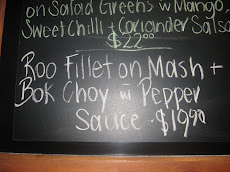 on Salad Greens w Mango,
Sweet Chilli + Coriander Salsa
$22.00
Roo Fillet on Mash +
Bok Choy w Pepper
Sauce - $19.90